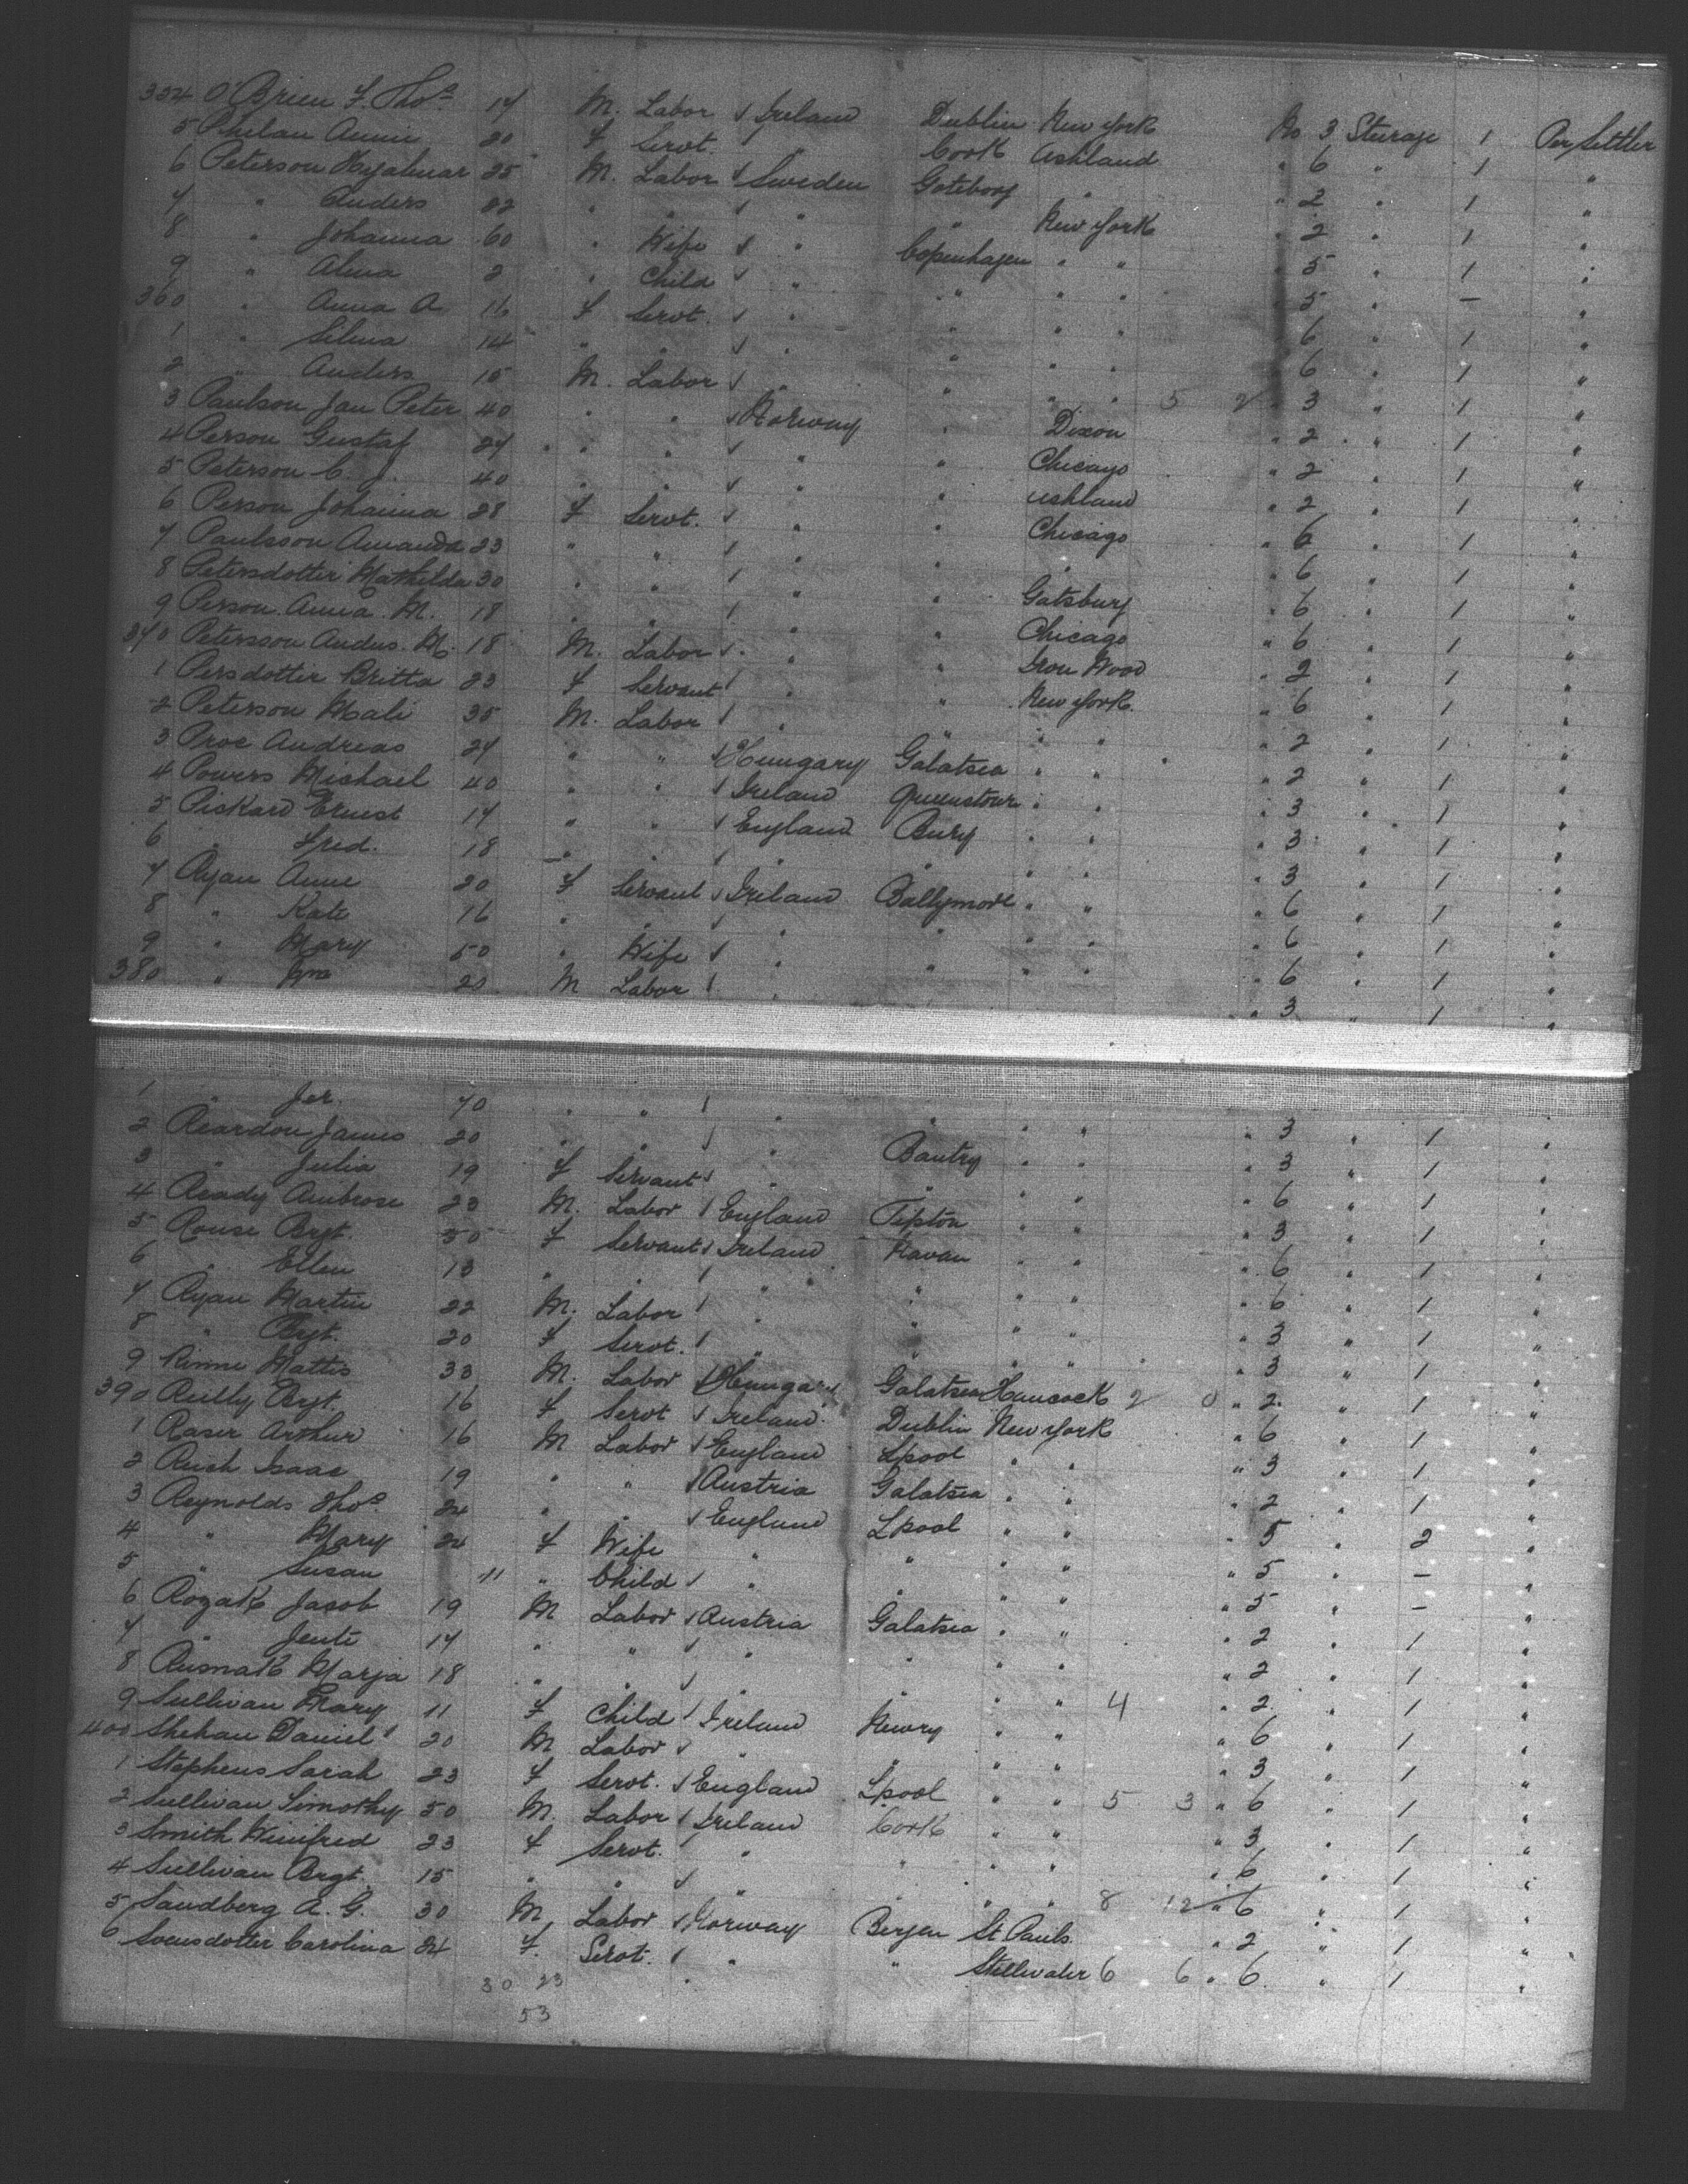 354 O'Brien F. Thos 17 M. Labor Ireland Dublin New York No 3 Steerage 1 Per Settler
5 Phelan Annie 20 F Servt. " Cork Ashland " 6 " 1 "
6 Peterson Hjalmar 25 M. Labor Sweden Goteborg " " 2 " 1 "
7 " Anders 22 " " " " New York " 2 " 1 "
8 " Johanna 60 " Wife " Copenhagen " " " 5 " 1 "
9 " Alma 2 " Child " " " " " 5 " — "
360 " Anna A 16 F Servt. " " " " " 6 " 1 "
1 " Selma 14 " " " " " " " 6 " 1 "
2 " Anders 15 M. Labor " " " " 5 2 " 3 " 1 "
3 Paulson Jan Peter 40 " " Norway " Dixon " 2 " 1 "
4 Person Gustaf 27 " " " " Chicago " 2 " 1 "
5 Peterson C. J. 40 " " " " Ashland " 2 " 1 "
6 Person Johanna 28 F Servt. " " Chicago " 6 " 1 "
7 Paulsson Amanda 23 " " " " " " 6 " 1 "
8 Petersdotter Mathilda 30 " " " " Gatsburg " 6 " 1 "
9 Person Anna M. 18 " " " " Chicago " 6 " 1 "
370 Petersson Andus. M. 18 M. Labor " " Iron Wood " 2 " 1 "
1 Persdotter Britta 23 F Servant " " New York. " 6 " 1 "
2 Peterson Mali 35 M. Labor " " " " " 2 " 1 "
3 Proc Andreas 27 " " Hungary Galatsea " " " 2 " 1 "
4 Powers Michael 40 " " Ireland Queenstown " " " 3 " 1 "
5 Pickard Ernest 17 " " England Bury " " " 3 " 1 "
6 " Fred. 18 " " " " " " " 3 " 1 "
7 Ryan Anne 20 F Servant Ireland Ballymore " " " 6 " 1 "
8 " Kate 16 " " " " " " " 6 " 1 "
9 " Mary 50 " Wife " " " " " 6 " 1 "
380 " Jno 20 M Labor " " 3 " 1 "
1 " Jer. 70 " " " " " " " 3 " 1 "
2 Reardon James 20 " " " Bantry " " " 3 " 1 "
3 " Julia 19 F Servant " " " " " 6 " 1 "
4 Ready Ambrose 23 M. Labor England Tipton " " " 3 " 1 "
5 Rouse Bgt. 50 F Servant Ireland Navan " " " 6 " 1 "
6 " Ellen 13 " " " " " " " 6 " 1 "
7 Ryan Martin 22 M. Labor " " " " " 3 " 1 "
8 " Bgt. 20 F Servt. " " " " " 3 " 1 "
9 Rinne Mattis 33 M. Labor Hungary Galatsea Hancock 2 0 " 2. " 1 "
390 Reilly Bgt. 16 F Servt Ireland Dublin New York " 6 " 1 "
1 Raser Arthur 16 M Labor England Lpool " " " 3 " 1 "
2 Ruch Isaac 19 " " Austria Galatsea " " " 2 " 1 "
3 Reynolds Thos. 24 " " England Lpool " " " 5 " 2 "
4 " Mary 24 F Wife " " " " " 5 " — "
5 " Susan 11 " Child " " " " " 5 " — "
6 Rozak Jacob 19 M Labor Austria Galatsea " " " 2 " 1 "
7 " Jente 17 " " " " " " " 2 " 1 "
8 Rusnak Marja 18 " " " " " " 4 " 2 " 1 "
9 Sullivan Mary 11 F Child Ireland Newry " " " 6 " 1 "
400 Shehan Daniel 20 M Labor " " " " " 3 " 1 "
1 Stephens Sarah 23 F Servt. England Lpool " " 5 3 " 6 " 1 "
2 Sullivan Timothy 50 M. Labor Ireland Cork " " " 3 " 1 "
3 Smith Winifred 23 F Servt. " " " " " 6 " 1 "
4 Sullivan Bgt. 15 " " " " " " 8 12 " 6 " 1 "
5 Sandberg A. G. 30 M, Labor Norway Bergen St Pauls. " 2 " 1 "
6 Svensdotter Carolina 24 F. Servt. " " Stillwater 6 6 " 6. " 1 "
30 23
53